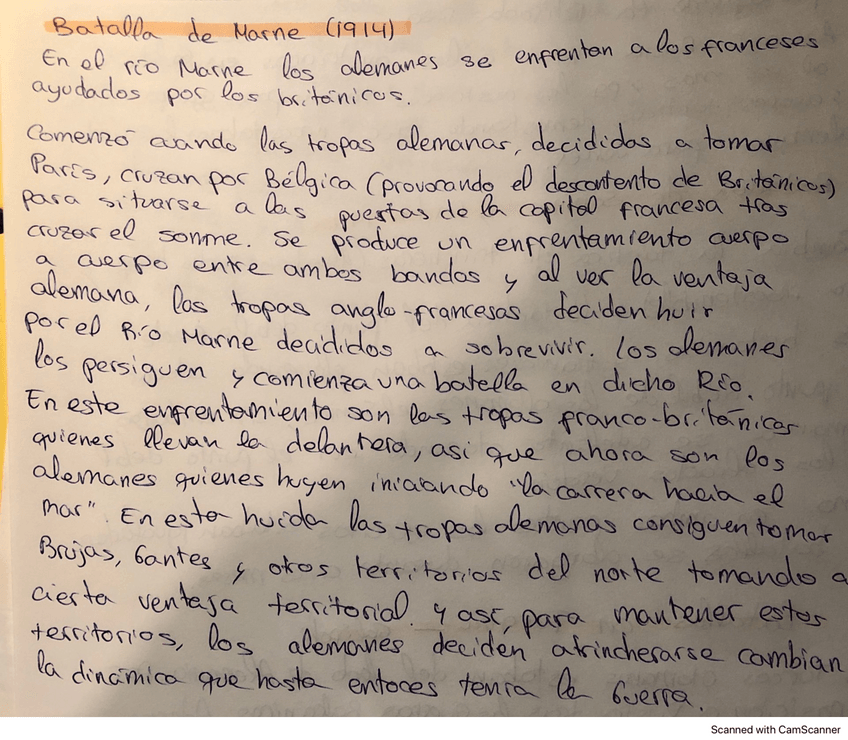 Batalla de Marne (1914)
En el río Marne los alemanes se enfrentan a los franceses
ayudados por los británicos.
Comenzó cuando las tropas alemanas, decididas a tomar
París, cruzan por Bélgica (provocando el descontento de Británicos)
para situarse a las puertas de la capital francesa tras
cruzar el somme. Se produce un enfrentamiento cuerpo
a cuerpo entre ambos bandos y al ver la ventaja
alemana, las tropas anglo-francesas deciden huir
por el Río Marne decididos a sobrevivir. Los alemanes
los persiguen y comienza una batalla en dicho Río.
En este enfrentamiento son las tropas franco-británicas
quienes llevan la delantera, así que ahora son los
alemanes quienes huyen iniciando "la carrera hacia el
mar". En esta huida las tropas alemanas consiguen tomar
Brujas, Gantes y otros territorios del norte tomando a
cierta ventaja territorial. Y así, para mantener estos
territorios, los alemanes deciden atrincherarse cambian
la dinámica que hasta entoces tenía la Guerra.
Scanned with CamScanner